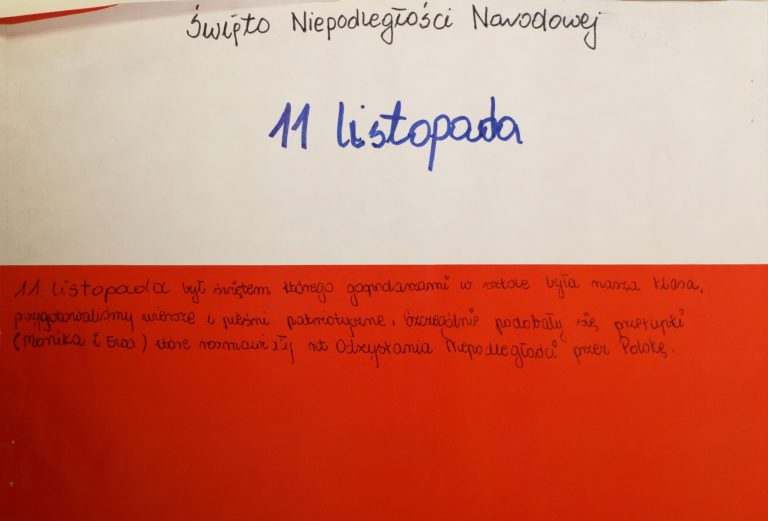 Święto Niepodległości Narodowej
11 listopada
11 listopada był świętem którego gospodarzami w szkole była nasza klasa,
przygotowaliśmy wiersze i pieśni patriotyczne. Szczególnie podobały się przekupki
(Monika i Ewa) które rozmawiały nt Odzyskania Niepodległości przez Polskę.